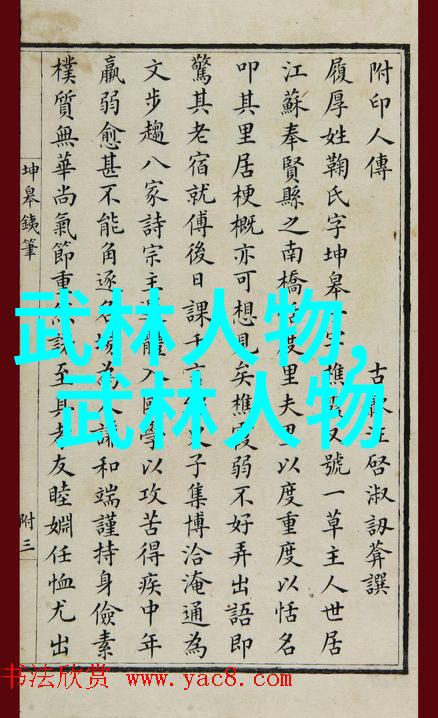 附印人傳
古汪啓淑訒葊譔
履厚姓鞠氏字坤皋字樵又號一草主人世居
江蘇奉賢縣之南橋度里夫以度重度以恬名
叩其里居梗概亦可想見矣樵霞弱不好弄出語即
驚其老宿就傅後日課千言子集博洽淹通為
文步趨八家詩宗主體入國學以攻苦得疾中年
羸弱愈甚不能角逐名場為人謙和端謹持身儉素
樸質無華尚氣節重諾至具老友睦婣任恤尤出
坤皋銕筆
附三
武林人物,
武林人物
书法欣赏 www.yac8.com